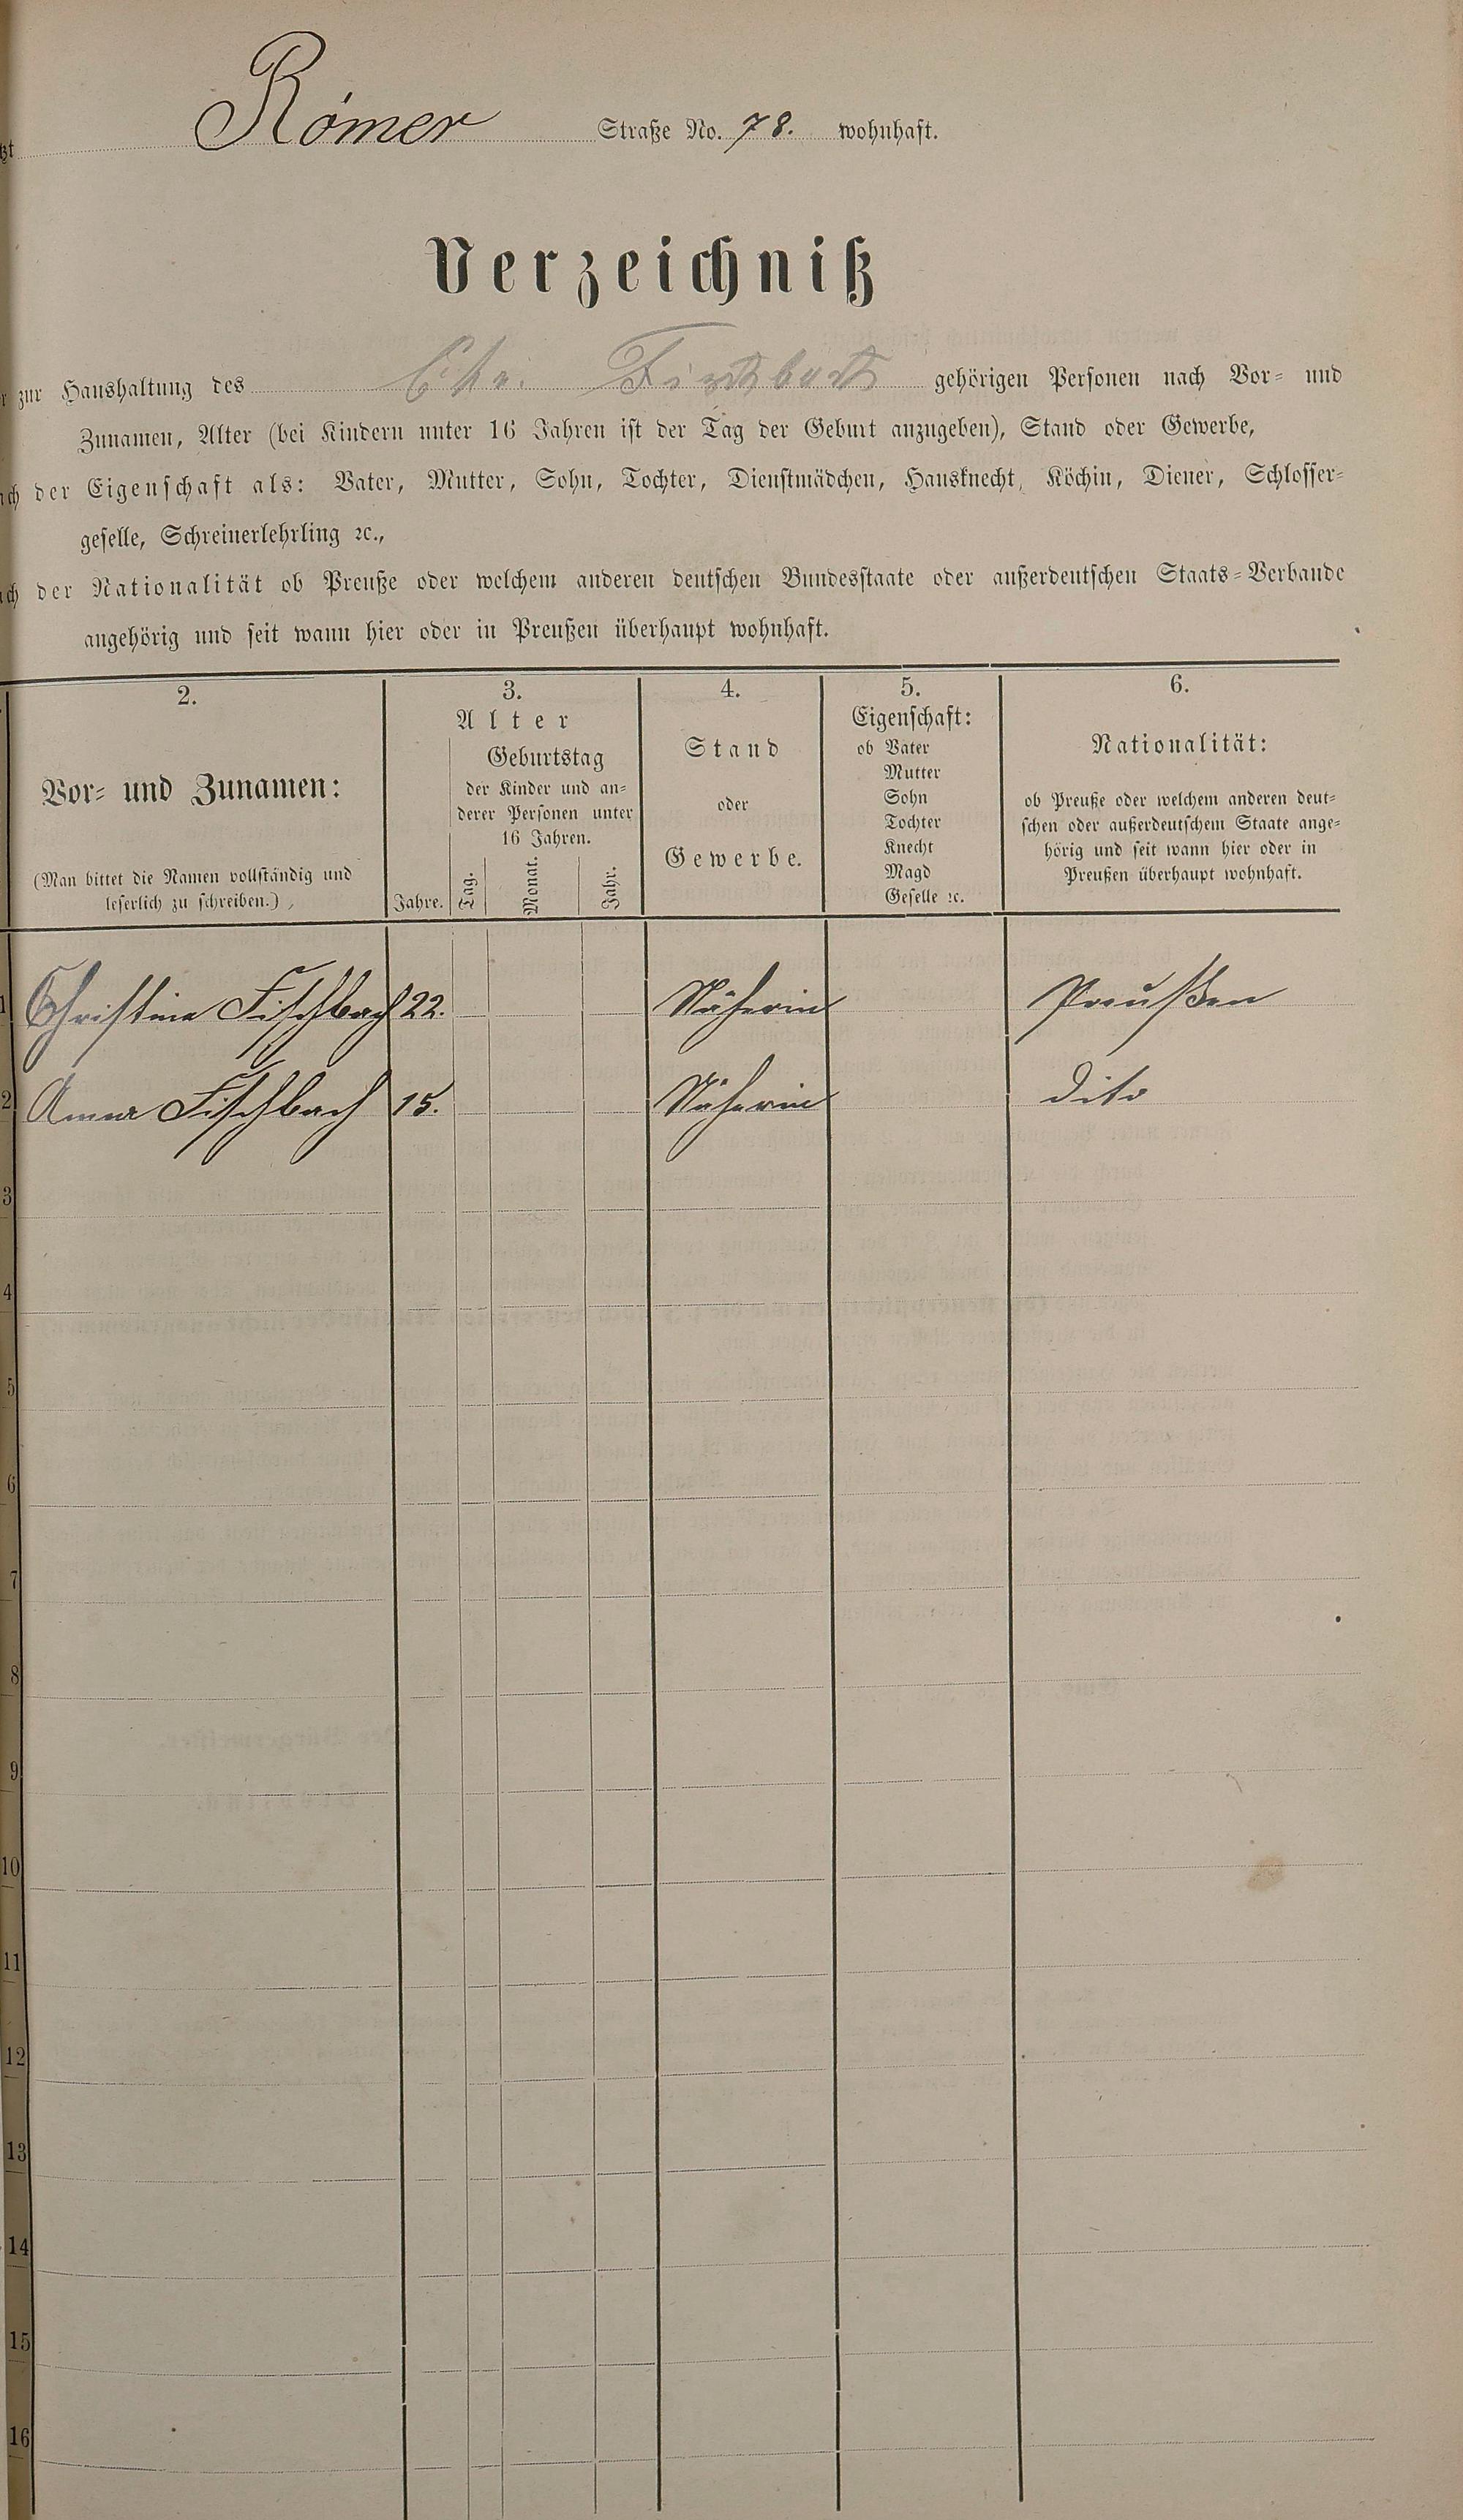 Römer Straße No. 78. wohnhaft.
Verzeichniß
zur Haushaltung des Chr. gehörigen Personen nach Vor- und
Zunamen, Alter (bei Kindern unter 16 Jahren ist der Tag der Geburt anzugeben), Stand oder Gewerbe,
der Eigenschaft als: Vater, Mutter, Sohn, Tochter, Dienstmädchen, Hausknecht, Köchin, Diener, Schlosser-
geselle, Schreinerlehrling ꝛc.,
der Nationalität ob Preuße oder welchem anderen deutschen Bundesstaate oder außerdeutschen Staats-Verbande
angehörig und seit wann hier oder in Preußen überhaupt wohnhaft.
2. 3. 4. 5. 6.
Vor- und Zunamen:
(Man bittet die Namen vollständig und
leserlich zu schreiben.)
Alter
Jahre.
Geburtstag
der Kinder und an-
derer Personen unter
16 Jahren.
Tag. Monat. Jahr.
Stand
oder
Gewerbe.
Eigenschaft:
ob Vater
Mutter
Sohn
Tochter
Knecht
Magd
Geselle ꝛc.
Nationalität:
ob Preuße oder welchem anderen deut-
schen oder außerdeutschem Staate ange-
hörig und seit wann hier oder in
Preußen überhaupt wohnhaft.
1 Christine Fischbach 22. Näherin Preußen
2 Anna Fischbach 15. Näherin dito
3
4
5
6
7
8
9
10
11
12
13
14
15
16